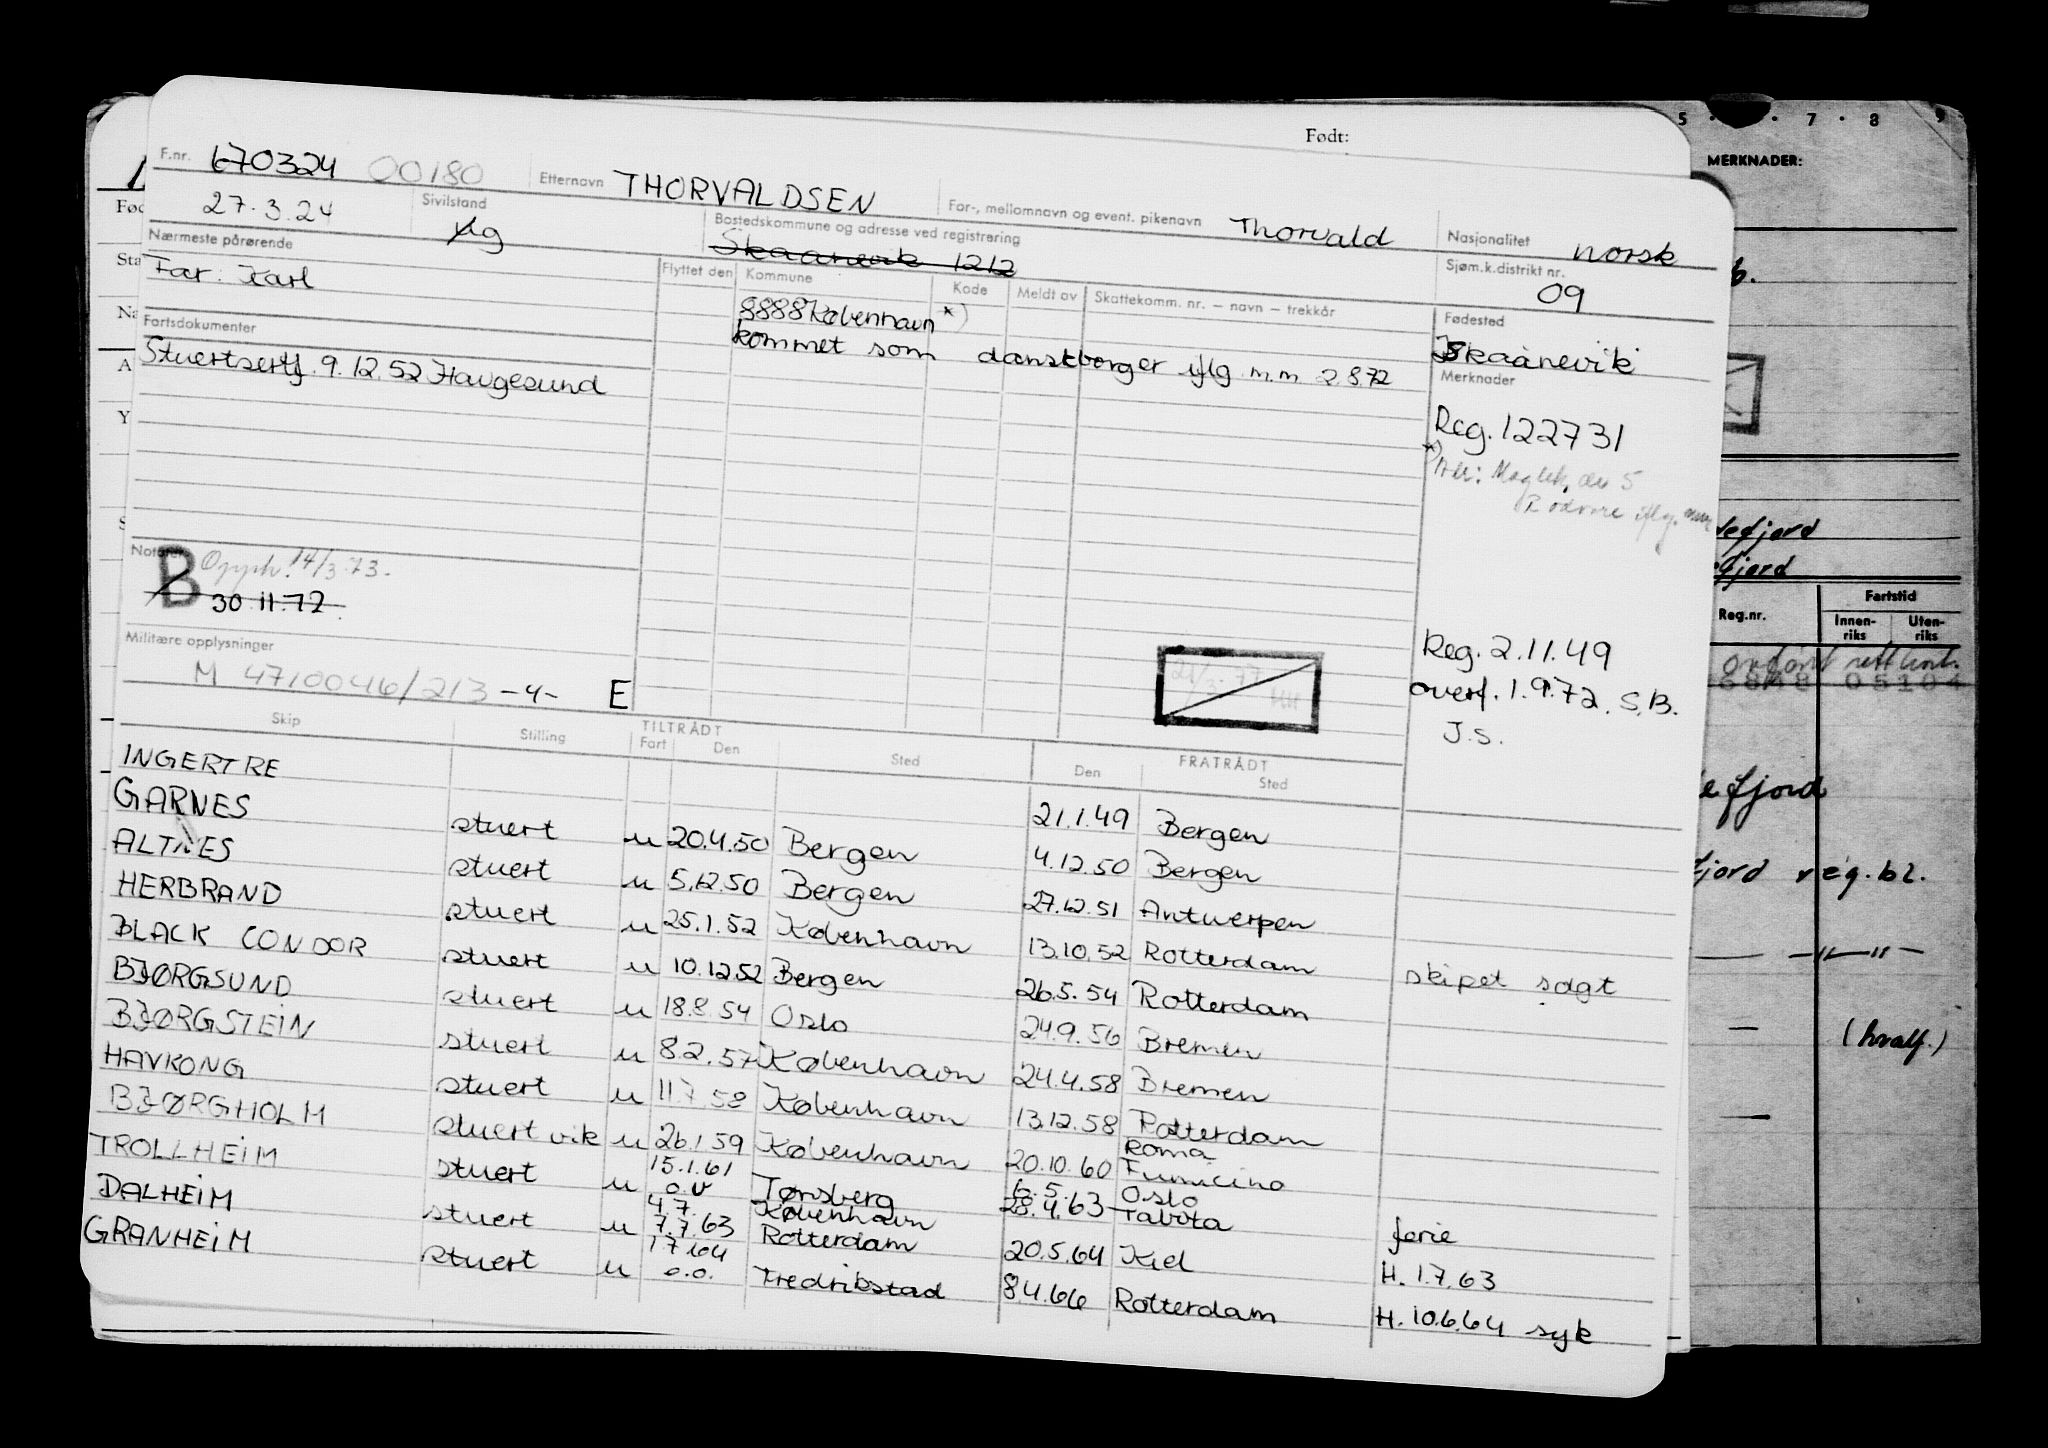 Født:
F.nr. 670324 00180 Etternavn THORVALDSEN For-, mellomnavn og event. pikenavn Thorvald Nasjonalitet norsk
27.3.24 Sivilstand Ug Bostedskommune og adresse ved registrering Skaanevik 1212 Sjøm.k.distrikt nr. 09
Nærmeste pårørende Flyttet den Kommune Kode Meldt av Skattekomm. nr. – navn – trekkår Fødested
Far: Karl 8888 København *) Skaanevik
kommet som danskborger iflg m.m 2.8.72
Fartsdokumenter Merknader
Stuertsertf. 9.12.52 Haugesund
Reg. 122731
*) Adr: 5
Rødovre iflg.
Notater
B Opph. 14/3.73.
30.11.72
Militære opplysninger
M 4710046/213 -4- E
21/3.77
Reg. 2.11.49
overf. 1.9.72. S.B.
J.S.
Skip Stilling TILTRÅDT Fart Den Sted FRATRÅDT Den Sted
INGERTRE 21.1.49 Bergen
GARNES stuert u 20.4.50 Bergen 4.12.50 Bergen
ALTNES stuert u 5.12.50 Bergen 27.12.51 Antwerpen
HERBRAND stuert u 25.1.52 København 13.10.52 Rotterdam skipet solgt
BLACK CONDOR stuert u 10.12.52 Bergen 26.5.54 Rotterdam
BJØRGSUND stuert u 18.8.54 Oslo 24.9.56 Bremen
BJØRGSTEIN stuert u 8.2.57 København 24.4.58 Bremen
HAVKONG stuert u 11.7.58 København 13.12.58 Rotterdam
BJØRGHOLM stuert vik u 26.1.59 København 20.10.60 Roma Fumicino
TROLLHEIM stuert u 15.1.61 o.v Tønsberg 6.5. Oslo
4.7. København 28.4.63 ferie
DALHEIM stuert u 7.7.63 Rotterdam 20.5.64 Kiel H. 1.7.63
GRANHEIM stuert u 1.7.64 o.o. Fredrikstad 8.4.66 Rotterdam H. 10.6.64 syk
5 7 8 9
MERKNADER:
b.
defjord
efjord
Reg.nr. Fartstid
Innen-riks Uten-riks
05104
efjord
fjord reg.bl.
— " —
(hvalf.)